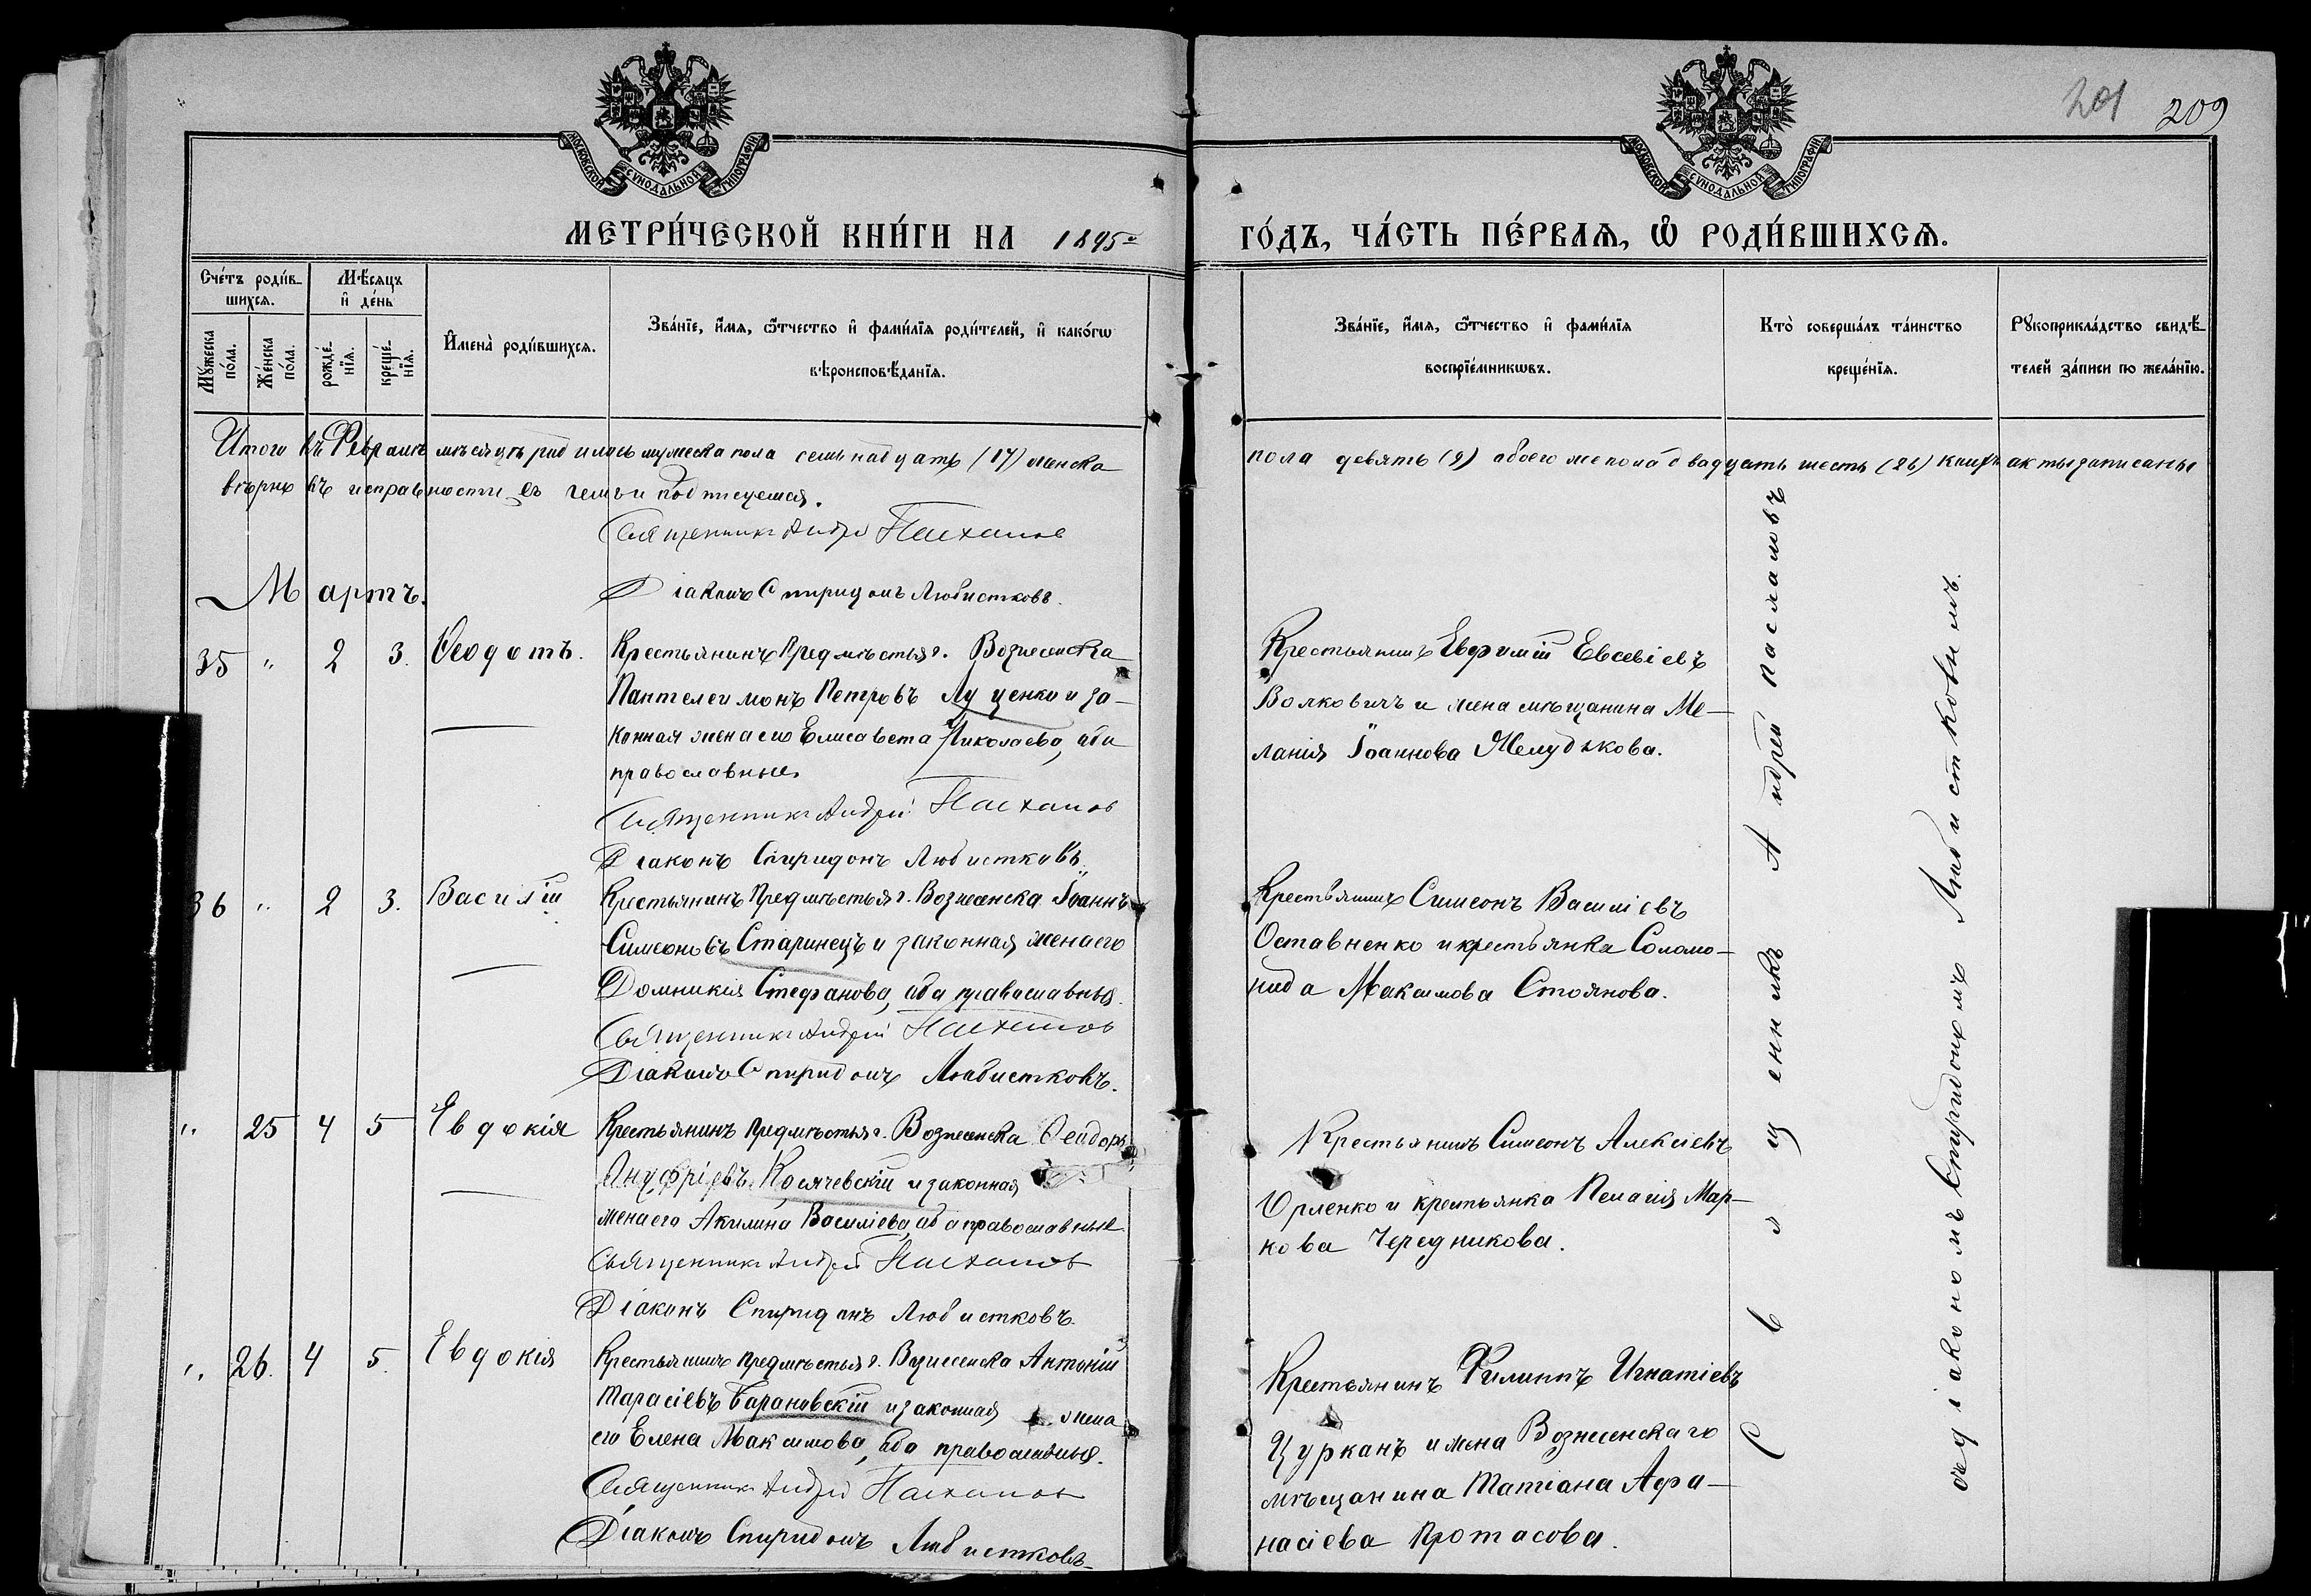 201 209
МОСКОВСКОЙ СѴНОДАЛЬНОЙ ТИПОГРАФІИ.
МОСКОВСКОЙ СѴНОДАЛЬНОЙ ТИПОГРАФІИ.
МЕТРИ́ЧЕСКОЙ КНИ́ГИ НА 1895 ГО́ДЪ, ЧА́СТЬ ПЕ́РВАѦ, Ѡ РОДИ́ВШИХСѦ.
Сче́тъ роди́в-
шихсѧ.
Мѣ́сѧцъ
и҆ де́нь
Мꙋ́жеска
по́ла.
Же́нска
по́ла.
рожде́-
нїѧ.
креще́-
нїѧ.
И҆мена̀ роди́вшихсѧ.
Зва́нїе, и҆́мѧ, ѻ҆́тчество и҆ фами́лїѧ роди́телей, и҆ како́гѡ
вѣроисповѣ́данїѧ.
Зва́нїе, и҆́мѧ, ѻ҆́тчество и҆ фами́лїѧ
воспрїе́мникѡвъ.
Кто̀ соверша́лъ та́инство
креще́нїѧ.
Рꙋкоприкла́дство свидѣ́-
телей за́писи по жела́нїю.
Итого въ Февралѣ мѣсяцѣ родилось мужеска пола семьнадцать (17) женска
пола девять (9) обоего же пола двадцать шесть (26) каковы акты записаны
вѣрно въ исправности въ чемъ и подписуемся.
Священникъ Андрей Пасхаловъ
Діаконъ Спиридонъ Любистковъ.
Мартъ.
35 " 2 3. Ѳеодотъ.
Крестьянинъ Предмѣстья г. Вознесенска
Пантелеимонъ Петровъ Луценко и за-
конная жена его Елисавета Николаева, оба
православные.
Священникъ Андрей Пасхаловъ
Діаконъ Спиридонъ Любистковъ.
Крестьянинъ Евфимій Евсевіевъ
Волковичъ и жена мѣщанина Ме-
ланія Іоаннова Желудькова.
36 " 2 3. Василій
Крестьянинъ Предмѣстья г. Вознесенска Іоаннъ
Симеоновъ Старинецъ и законная жена его
Домникія Стефанова, оба православныя.
Священникъ Андрей Пасхаловъ
Діаконъ Спиридонъ Любистковъ.
Крестьянинъ Симеонъ Василіевъ
Оставненко и крестьянка Соломо-
нида Максимова Стоянова.
" 25 4 5 Евдокія
Крестьянинъ Предмѣстья г. Вознесенска Ѳеодоръ
Ануфріевъ Косячевскій и законная
жена его Акилина Василіева, оба православные
Священникъ Андрей Пасхаловъ
Діаконъ Спиридонъ Любистковъ.
Крестьянинъ Симеонъ Алексіевъ
Орленко и крестьянка Пелагія Мар-
кова Чередникова.
" 26. 4 5. Евдокія
Крестьянинъ предмѣстья г. Вознесенска Антоній
Тарасіевъ Барановскій и законная жена
его Елена Максимова, оба православныя.
Священникъ Андрей Пасхаловъ
Діаконъ Спиридонъ Любистковъ
Крестьянинъ Филиппъ Игнатіевъ
Цурканъ и жена Вознесенскаго
мѣщанина Татіана Афа-
насіева Протасова.
Священникъ Андрей Пасхаловъ
съ діакономъ Спиридономъ Любистковымъ.